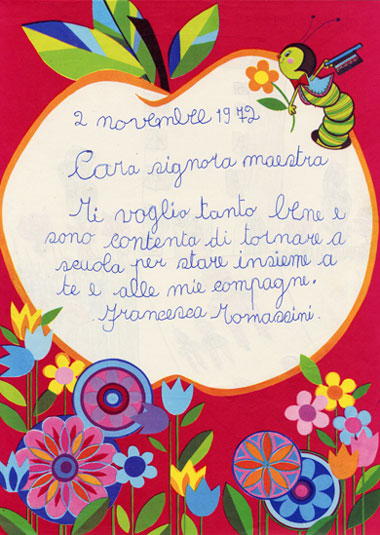 2 novembre 1972
Cara signora maestra
Ti voglio tanto bene e
sono contenta di tornare a
scuola per stare insieme a
te e alle mie compagne.
Francesca Tomassini.